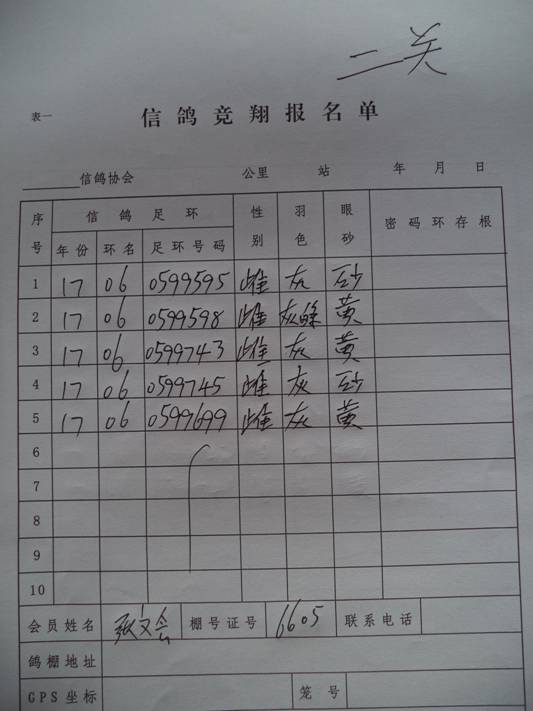 二关
表一
信鸽竞翔报名单
信鸽协会 公里 站 年 月 日
序号 信鸽足环 性别 羽色 眼砂 密码环存根
年份 环名 足环号码
1 17 06 0599595 雌 灰 砂
2 17 06 0599598 雌 灰 黄
3 17 06 0599743 雌 灰 黄
4 17 06 0599745 雌 灰 砂
5 17 06 0599699 雌 灰 黄
6
7
8
9
10
会员姓名 张文会 棚号证号 6605 联系电话
鸽棚地址
GPS坐标 笼号